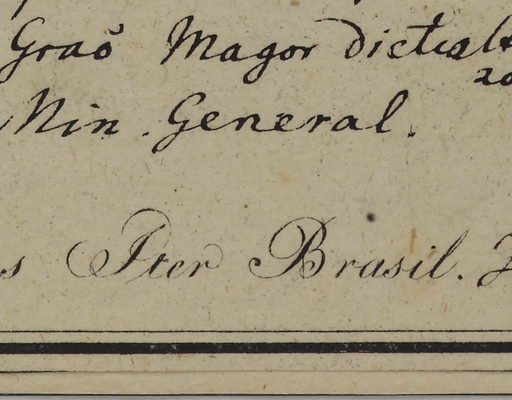 Graŏ Magor dictis
Min. General.
s Iter Brasil.